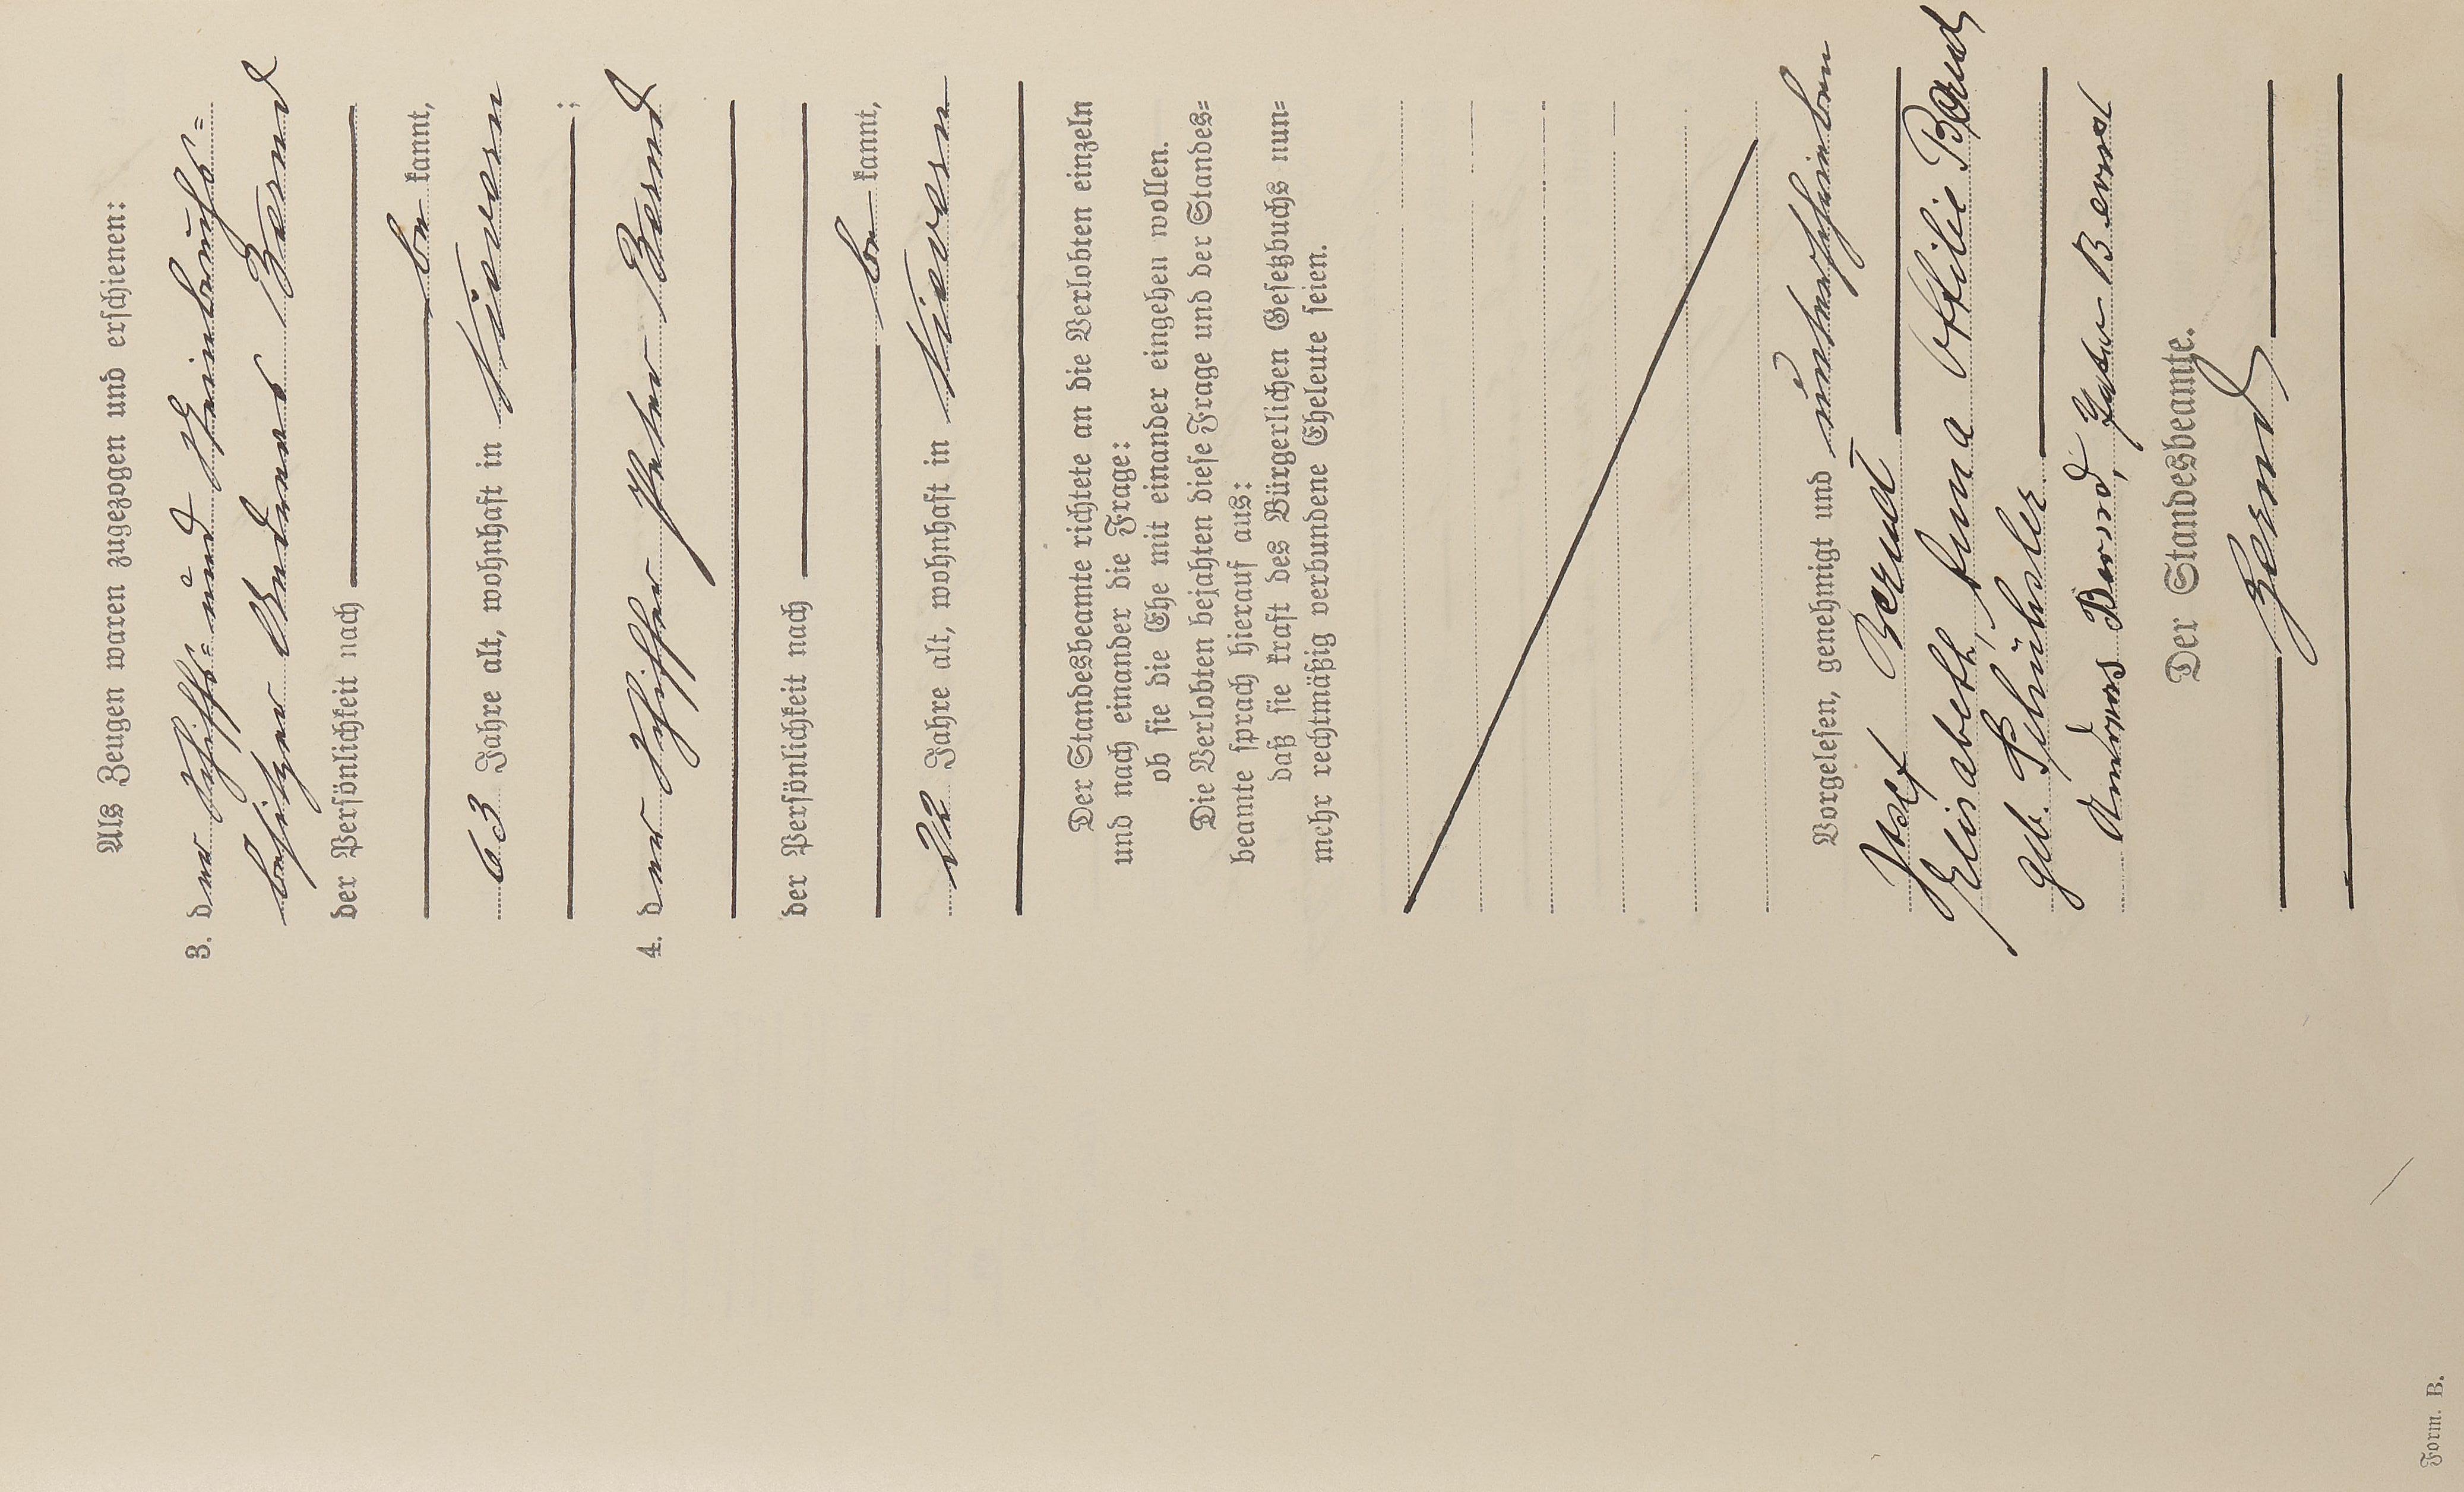 Als Zeugen waren zugezogen und erschienen:
3. der Schiffs= und Steinbruchs=
besitzer Andreas Bernd
der Persönlichkeit nach
be kannt,
63 Jahre alt, wohnhaft in Kövern
;
4. der Schiffer Peter Bernd
der Persönlichkeit nach
be kannt,
32 Jahre alt, wohnhaft in
Der Standesbeamte richtete an die Verlobten einzeln
und nach einander die Frage:
ob sie die Ehe mit einander eingehen wollen.
Die Verlobten bejahten diese Frage und der Standes=
beamte sprach hierauf aus:
daß sie kraft des Bürgerlichen Gesetzbuchs nun=
mehr rechtmäßig verbundene Eheleute seien.
Vorgelesen, genehmigt und unterschrieben
Josef Bernd
Elisabeth, Anna Ottilie Bernd
geb. Schüssler
Andreas Bernd, Peter Bernd
Der Standesbeamte.
Bernd
Form. B.